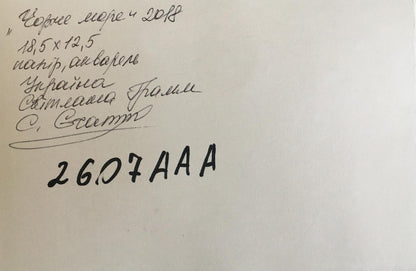 "Чорне море" 2018
18,5 x 12,5
папір, акварель
Україна
Світлана Грамм
С.
2607AAA